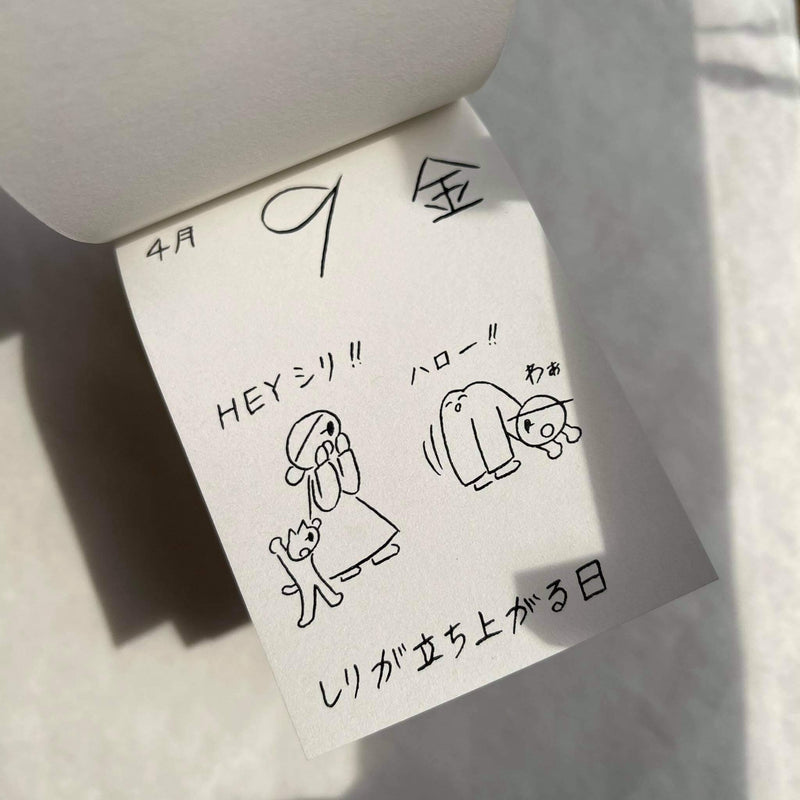 4月 9 金
HEYシリ!!
ハロー!!
わぁ
しりが立ち上がる日